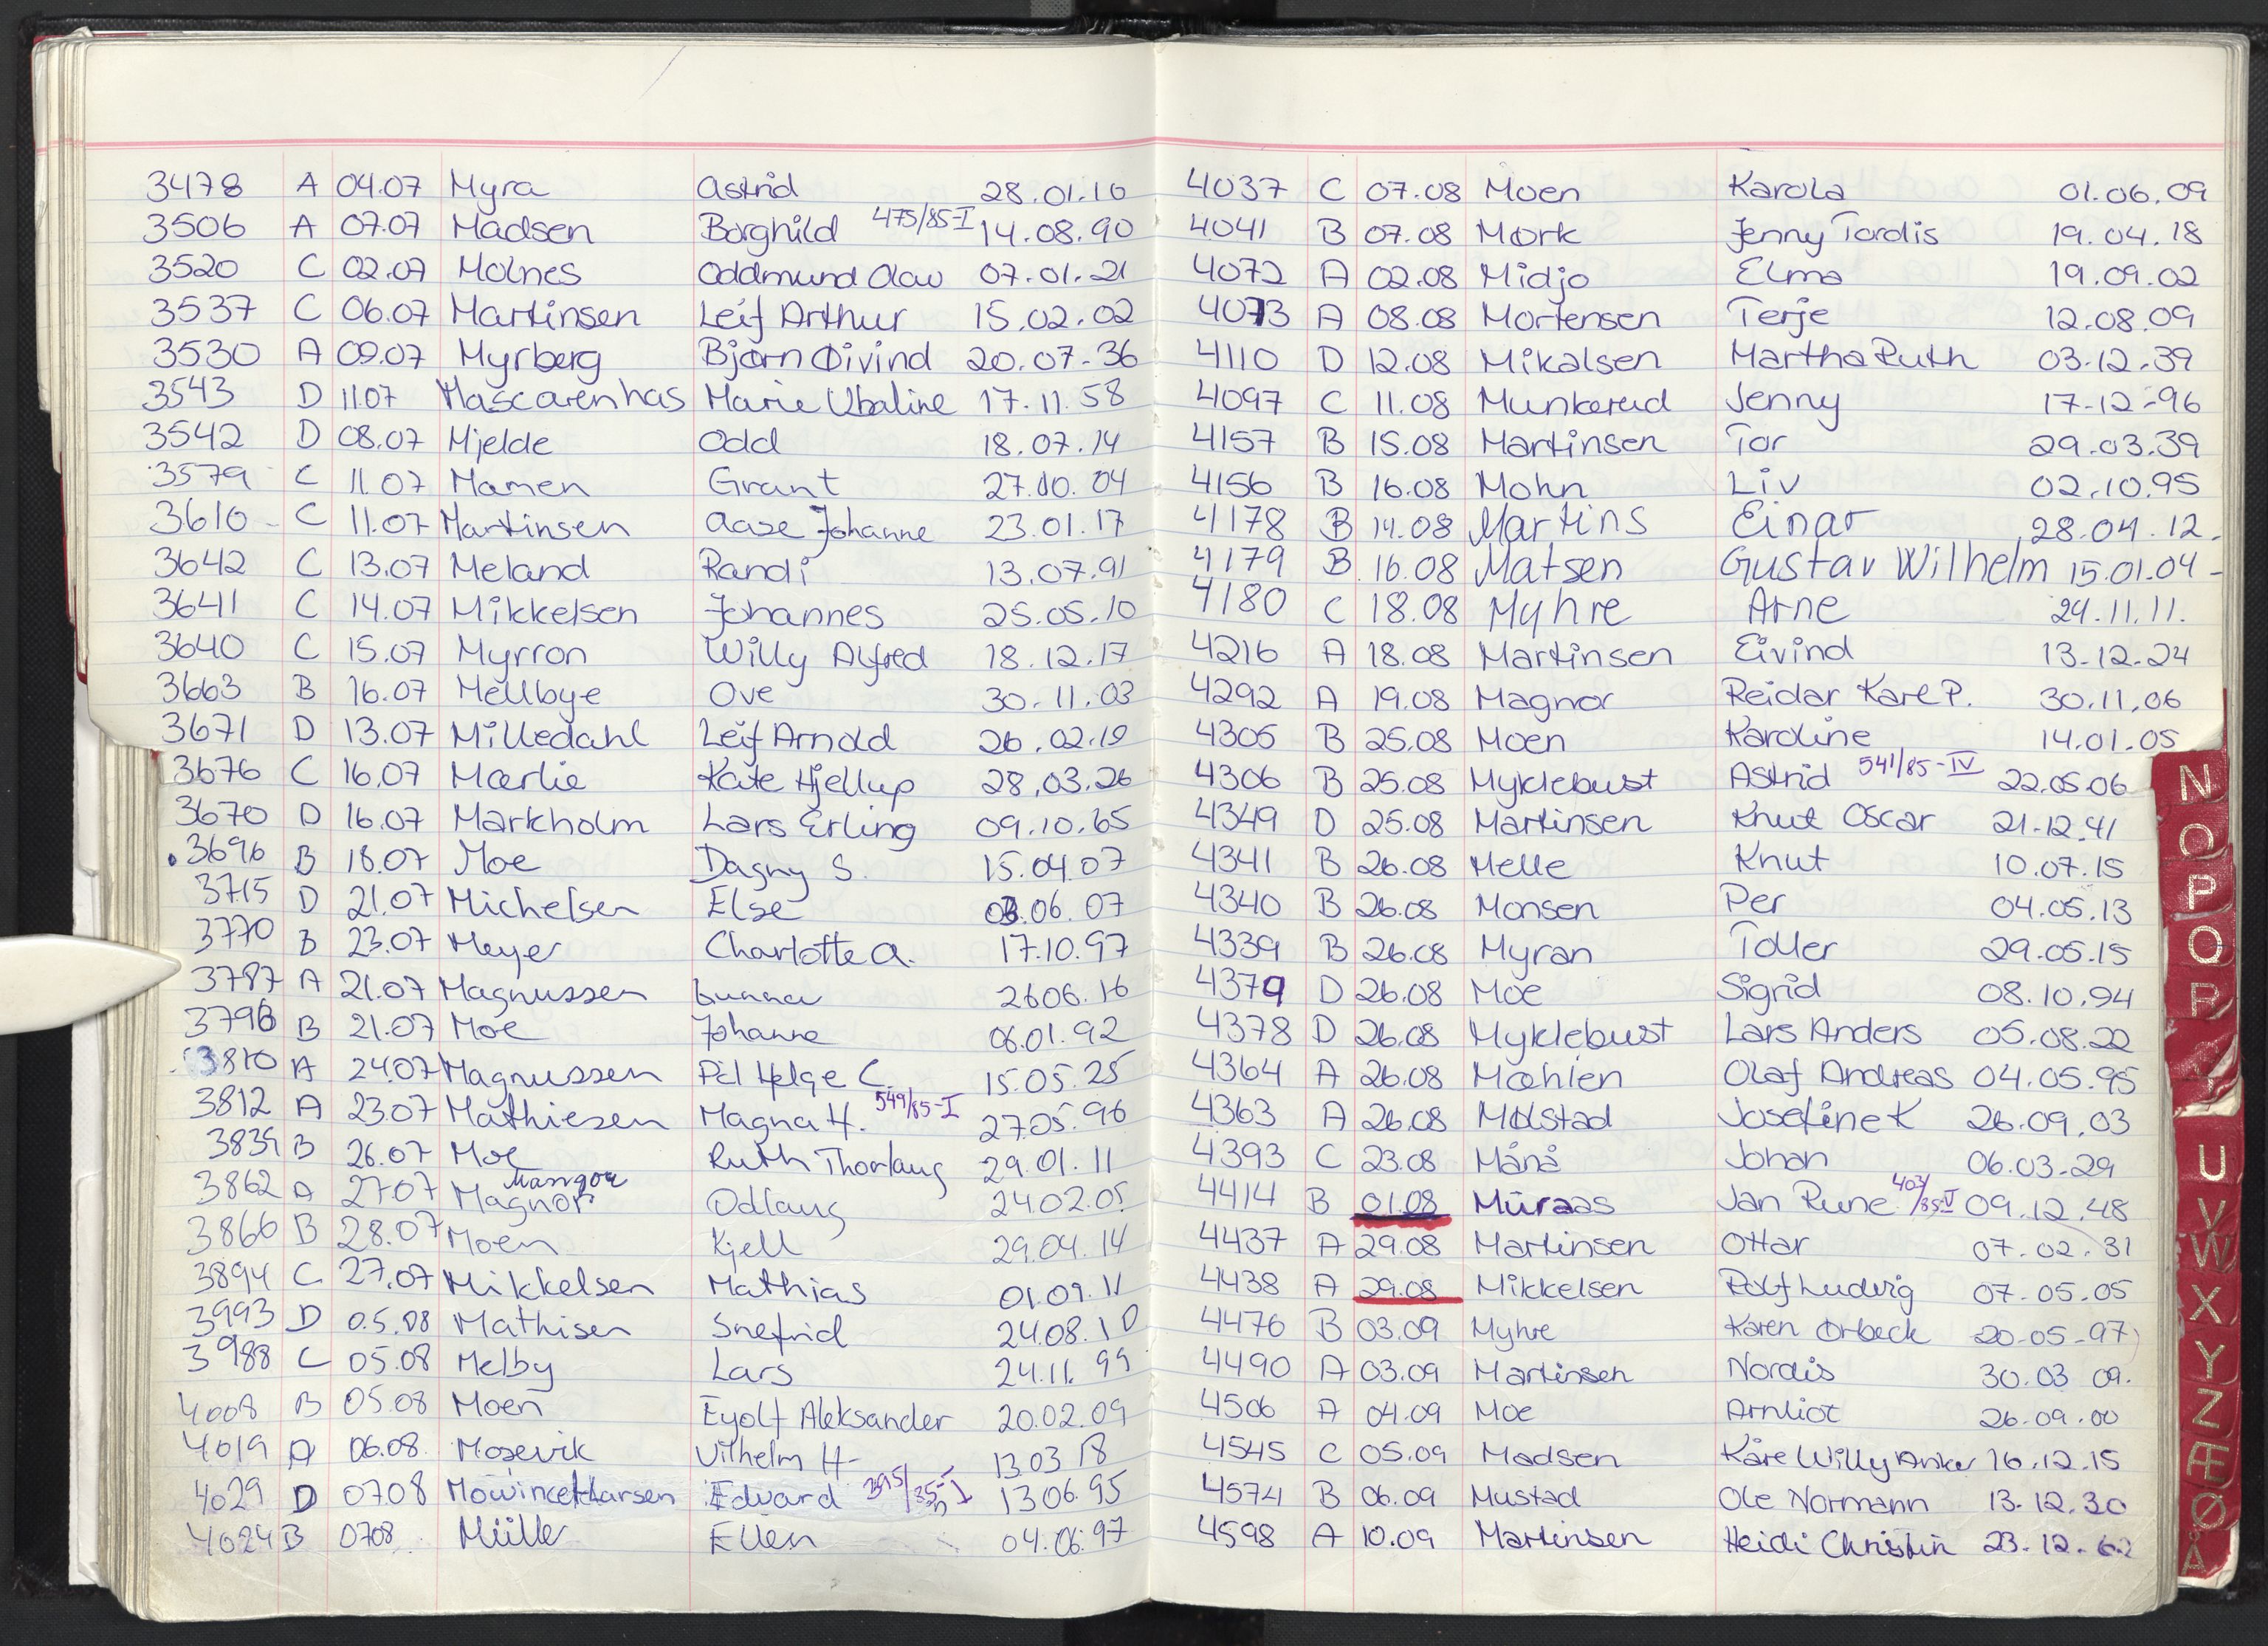 3478 A 04.07 Myra Astrid 28.01.10
3506 A 07.07 Madsen Borghild 475/85-I 14.08.90
3520 C 02.07 Molnes Oddmund Olav 07.01.21
3537 C 06.07 Martinsen Leif Arthur 15.02.02
3530 A 09.07 Myrberg Bjørn Øivind 20.07-36
3543 D 11.07 Mascarenhas Marie Ubaline 17.11.58
3542 D 08.07 Mjelde Odd 18.07.14
3579 C 11.07 Mamen Grant 27.10.04
3610 - C 11.07 Martinsen Aase Johanne 23.01.17
3642 C 13.07 Meland Randi 13.07.91
3641 C 14.07 Mikkelsen Johannes 25.05.10
3640 C 15.07 Myrron Willy Alfred 18.12.17
3663 B 16.07 Mellbye Ove 30.11.03
3671 D 13.07 Milledahl Leif Arnold 26.02.19
3676 C 16.07 Mærlie Kate Hjellup 28.03.26
3670 D 16.07 Markholm Lars Erling 09.10.65
3696 B 18.07 Moe Dagny S. 15.04.07
3715 D 21.07 Michelsen Else 03.06.07
3770 B 23.07 Meyer Charlotte A. 17.10.97
3787 A 21.07 Magnussen Gunnar 26.06.16
3796 B 21.07 Moe Johanne 06.01.92
3810 A 24.07 Magnussen Pål Helge C. 15.05.25
3812 A 23.07 Mathiesen Magna H. 549/85-I 27.05.96
3839 B 26.07 Moe Ruth Thorlaug 29.01.11
3862 A 27.07 Magnor Mangor Odlaug 24.02.05
3866 B 28.07 Moen Kjell 29.04.14
3894 C 27.07 Mikkelsen Mathias 01.09.11
3993 D 05.08 Mathisen Snefrid 24.08.10
3988 C 05.08 Melby Lars 24.11.99
4008 B 05.08 Moen Eyolf Aleksander 20.02.09
4019 A 06.08. Mosevik Vilhelm H- 13.03 18
4029 D 07.08 Edvard 13.06.95
4024 B 0708 Müller Ellen 04.06.97
4037 C 07.08 Moen Karola 01.06.09
4041 B 07.08 Mørk Jenny Tordis 19.04.18
4072 A 02.08 Midjo Elma 19.09.02
4073 A 08.08 Mortensen Terje 12.08.09
4110 D 12.08 Mikalsen Martha Ruth 03.12.39
4097 C 11.08 Munkerud Jenny 17-12-96
4157 B 15.08 Martinsen Tor 29.03.39
4156 B 16.08 Mohn Liv 02.10.95
4178 B 14.08 Martins Einar 28.04.12.
4179 B. 16.08 Matsen Gustav Wilhelm 15.01.04-
4180 C 18.08 Myhre Arne 29.11.11.
4216 A 18.08 Martinsen Eivind 13-12-24
4292 A 19.08 Magnor Reidar Kare P. 30.11.06
4305 B 25.08 Moen Karoline 14.01.05
4306 B 25.08 Myklebust Astrid 541/85-IV 22.05.06
4349 D 25.08 Martinsen Knut Oscar 21-12.41
4341 B 26.08 Melle Knut 10.07.15
4340 B 26.08 Monsen Per 04.05.13
4339 B 26.08 Myran Toller 29.05.15
4379 D 26.08 Moe Sigrid 08.10.94
4378 D 26.08 Myklebust Lars Anders 05.08.22
4364 A 26.08 Mæhlen Olaf Andreas 04.05.95
4363 A 26.08 Mølstad Josefine K 26.09.03
4393 C 23.08 Månå Johan 06.03-29
4414 B 01.08 Muraas Jan Rune 09.12.48
4437 A 29.08 Martinsen Ottar 07.02.31
4438 A 29.08 Mikkelsen Rolf Ludvig 07.05.05
4476 B 03.09 Myhre Karen Ørbeck 20-05-97
4490 A 03.09 Martinsen Nordis 30.03 09.
4506 A 04.09 Moe Arnliot 26.09.00
4545 C 05.09 Madsen Kåre Willy Anker 16.12.15
4574 B 06.09 Mustad Ole Normann 13.12.30
4598 A 10.09 Martinsen Heidi Christin 23.12.62
N
O
P
Q
R
U
V
W
X
Y
Z
Æ
Ø
Å